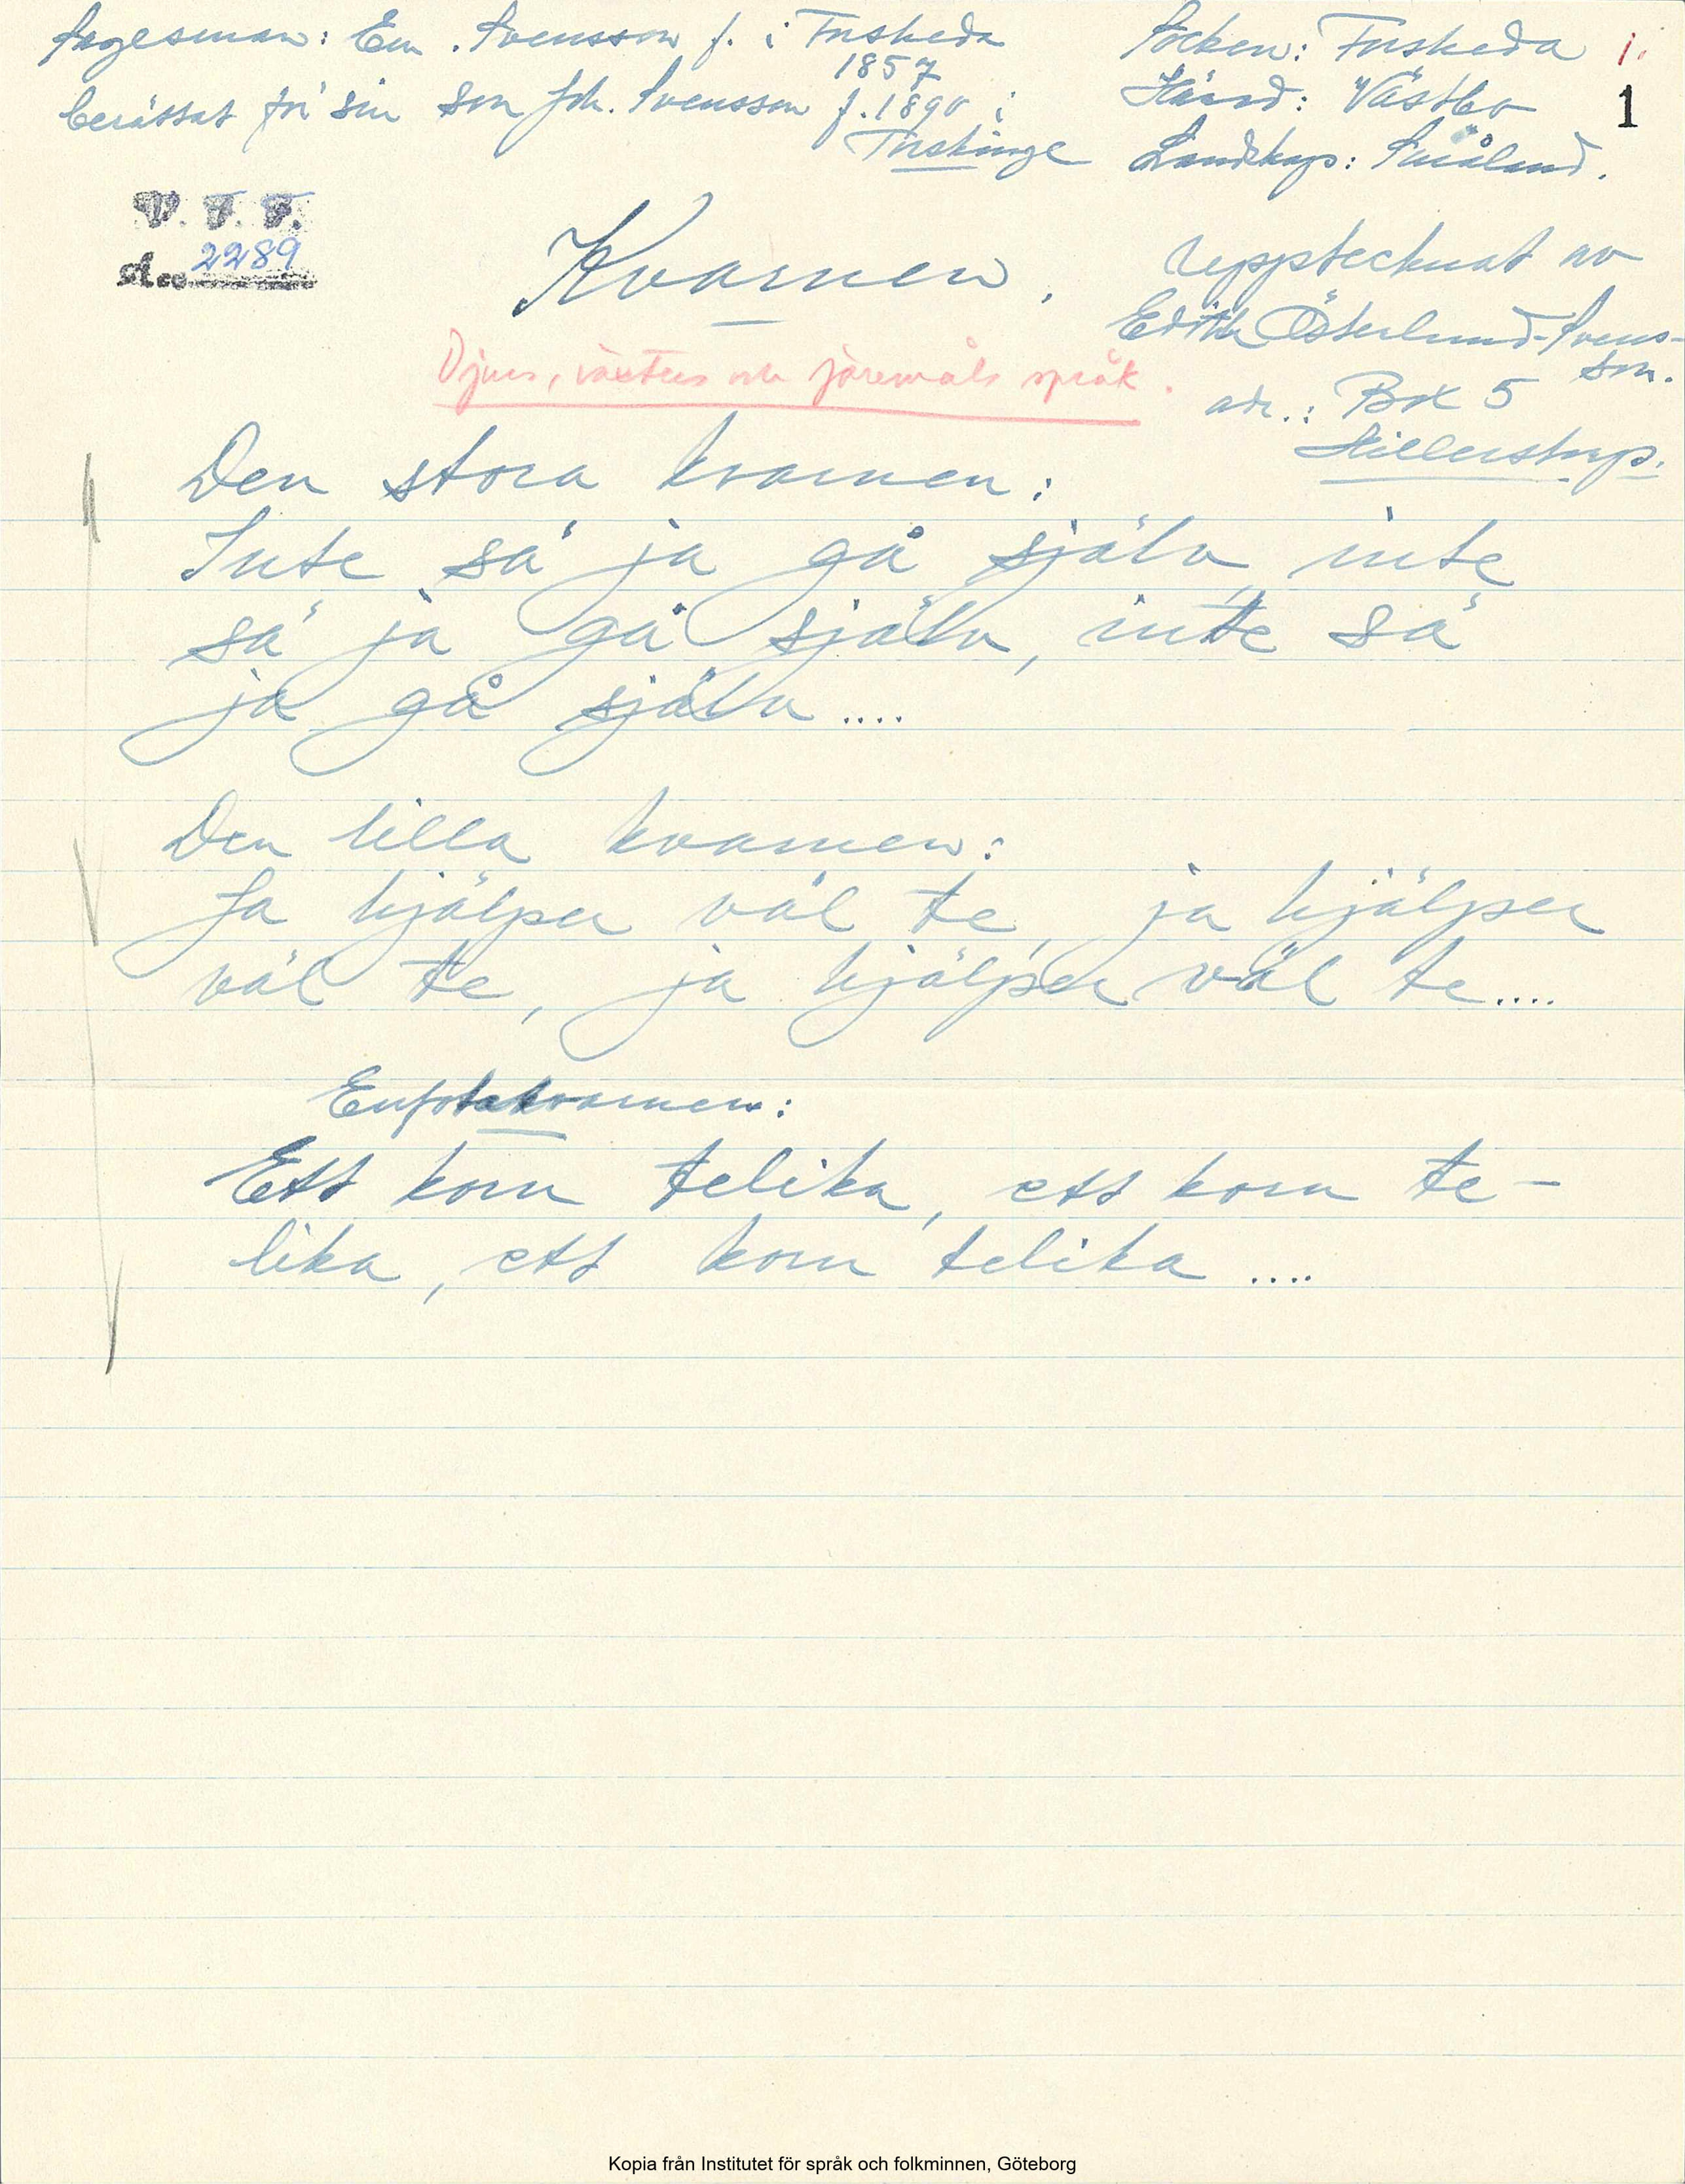 Sagesman: Em. Svensson f. i Forsheda
1857
berättat för sin son Joh. Svensson f. 1890 i
Torskinge
Socken: Forsheda
Härad: Västbo
Landskap: Småland.
1.
1
V. F. F.
2289
Kvarnen.
Upptecknat av
Edith Österlund-Svens-
son.
adr.: Box 5
Hillerstorp.
Djurs, växters och föremåls språk.
Den stora kvarnen:
Inte sa' ja gå själv, inte
sa' ja gå själv, inte sa'
ja gå själv....
Den lilla kvarnen:
Ja hjälper väl te, ja hjälper
väl te, ja hjälper väl te....
Enfotakvarnen:
Ett korn telika, ett korn te-
lika, ett korn telika ....
Kopia från Institutet för språk och folkminnen, Göteborg